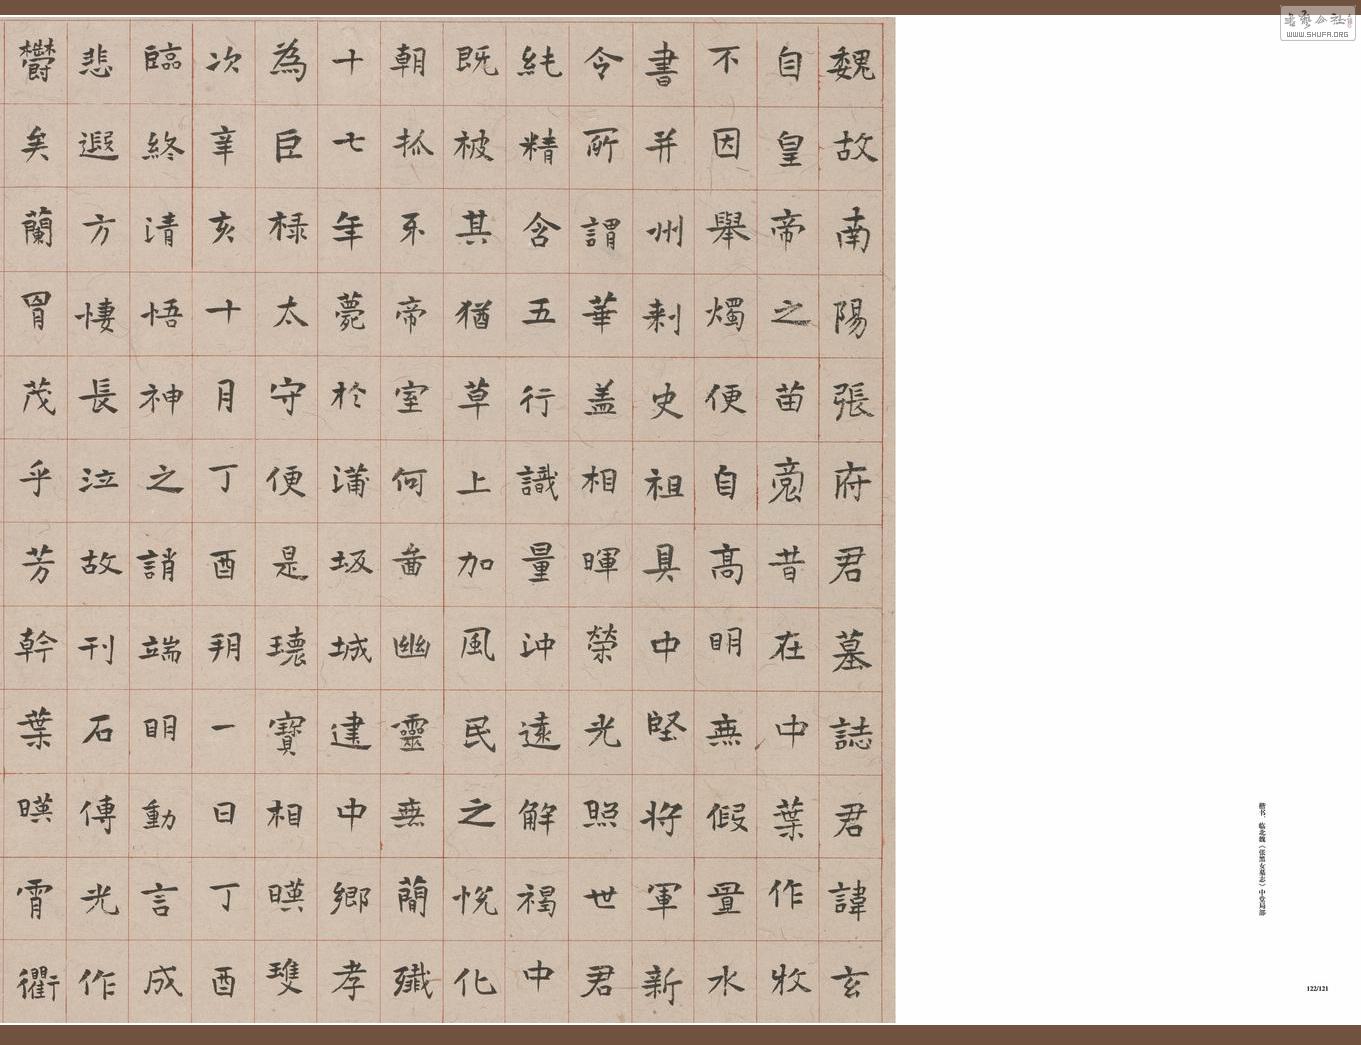 魏故南陽張府君墓誌君諱玄
自皇帝之苗裔昔在中葉作牧
不因舉燭便自高明無假置水
書并州刺史祖具中堅將軍新
令所謂華盖相暉榮光照世君
純精含五行識量沖遠解褐中
既被其猶草上加風民之悅化
朝孤不帝室何啚幽靈無簡殲
十七年薨於蒲坂城建中鄉孝
為巨祿太守便是瓌寶相暎雙
次辛亥十月丁酉朔一日丁酉
臨終清悟神之誚端明動言成
悲遐方悽長泣故刊石傳光作
欝矣蘭胃茂乎芳幹葉暎霄衢
楷书，临北魏《张黑女墓志》中堂局部
122/121
书艺公社
WWW.SHUFA.ORG